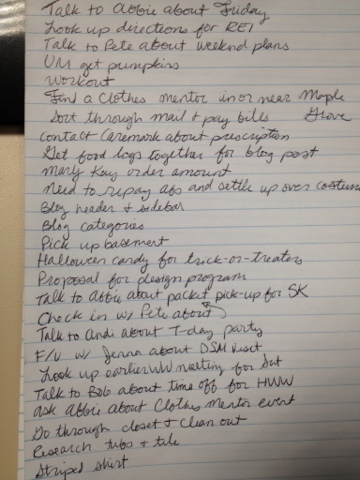 Talk to Abbie about Friday
Look up directions for REI
Talk to Pete about weekend plans
UM get pumpkins
Workout
Find a Clothes mentor in or near Maple Grove
Sort through mail + pay bills
Contact Caremark about prescription
Get food logs together for blog post
Mary Kay order amount
Need to repay abs and settle up over costume
Blog header & sidebar
Blog categories
Pick up basement
Halloween candy for trick-or-treaters
Proposal for design program
Talk to Abbie about packet pick-up for 5K
Check in w/ Pete about
Talk to Andi about T-day party
F/U w/ Jenna about DSM visit
Look up earlier WW meeting for Sat
Talk to Bob about time off for HWW
Ask Abbie about Clothes Mentor event
Go through closet & clean out
Research tubs & tile
Striped shirt